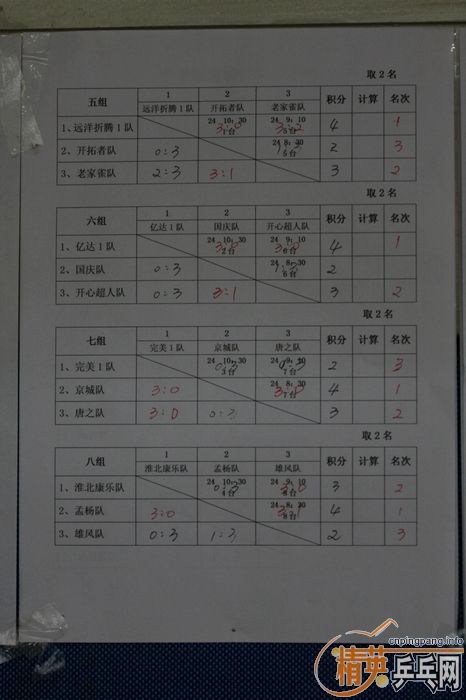 取2名
五组 1 2 3 积分 计算 名次
远洋折腾1队 开拓者队 老家雀队
1、远洋折腾1队 24 10:30 1台 3:0 24 9:10 5台 3:2 4 1
2、开拓者队 0:3 24 8:30 5台 1:3 2 3
3、老家雀队 2:3 3:1 3 2
取2名
六组 1 2 3 积分 计算 名次
亿达1队 国庆队 开心超人队
1、亿达1队 24 10:30 2台 3:0 24 9:10 6台 3:0 4 1
2、国庆队 0:3 24 8:30 6台 1:3 2
3、开心超人队 0:3 3:1 3 2
取2名
七组 1 2 3 积分 计算 名次
完美1队 京城队 唐之队
1、完美1队 24 10:30 3台 0:3 24 9:10 7台 0:3 2 3
2、京城队 3:0 24 8:30 7台 3:0 4 1
3、唐之队 3:0 0:3 3 2
取2名
八组 1 2 3 积分 计算 名次
淮北康乐队 孟杨队 雄风队
1、淮北康乐队 24 10:30 4台 0:3 24 9:10 8台 3:0 3 2
2、孟杨队 3:0 24 8:30 8台 3:1 4 1
3、雄风队 0:3 1:3 2 3
cnpingpang.info
精英乒乓网